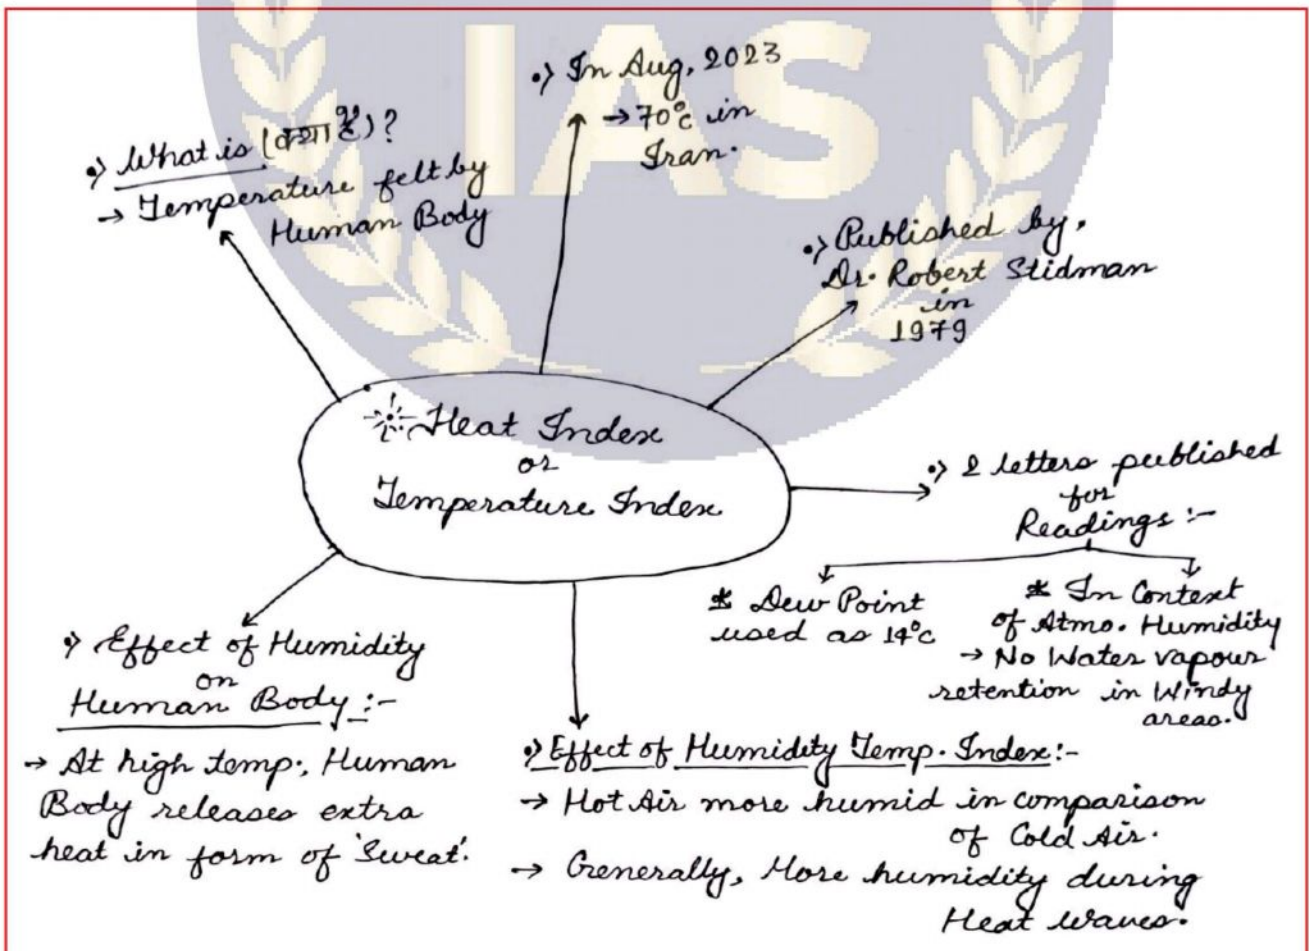 IAS
•> In Aug, 2023
→ 70°c in
Iran.
•> What is (क्या है)?
→ Temperature felt by
Human Body
•> Published by,
Dr. Robert Stidman
in
1979
Heat Index
or
Temperature Index
•> 2 letters published
for
Readings :-
* Dew Point
used as 14°c
* In Context
of Atmo. Humidity
→ No Water vapour
retention in Windy
areas.
•> Effect of Humidity
on
Human Body :-
→ At high temp., Human
Body releases extra
heat in form of 'Sweat'.
•> Effect of Humidity Temp. Index :-
→ Hot Air more humid in comparison
of Cold Air.
→ Generally, More humidity during
Heat waves.